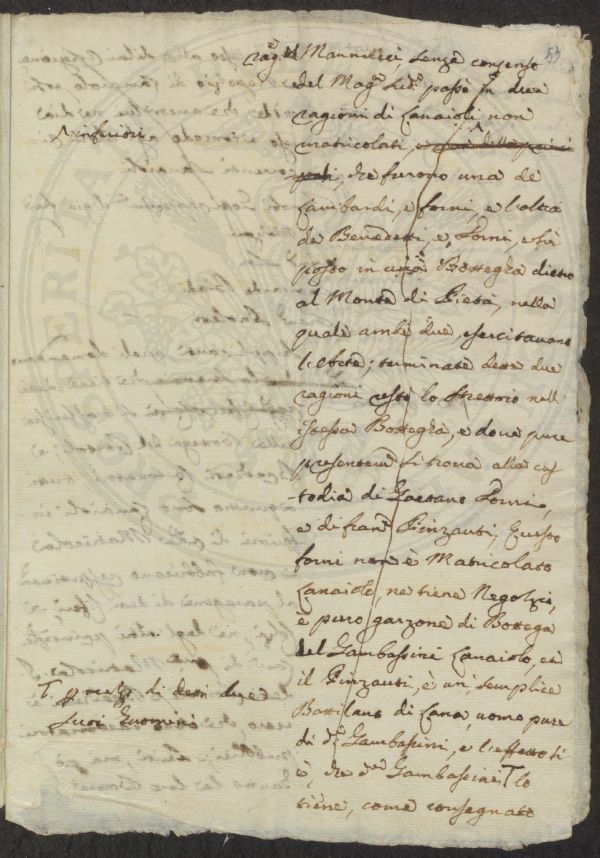 53
rag.e Mannucci, senza consenso
del Mag.o passò in due
ragioni di Lanaioli non
^ inferiori
matricolati,
che furono una de
Lombardi, e forni, e l'altra
de Benedetti, e, Forni, e fù
posto in una Bottegha dietro
al Monte di Pietà, nella
quale ambe due, esercitavano
l'Arte; terminate dette due
ragioni restò lo Strettoio nell
istessa Bottegha, e dove pure
presentem.e si trova alla cus
todia di Gaetano Forni,
e di Fran.co Pinzauti; Questo
forni non è Matricolato
Lanaiolo, ne tiene Negotzi,
è puro garzone di Bottega
del Gambassini Lanaiolo, et
il Pinzauti, è un, semplice
Battilano di Lana, uomo pure
di d.o Gambassini, e l'effetto si
è, che d.o Gambassini T lo
tiene, come consegnato
T p mezzo di detti due
suoi Huomini